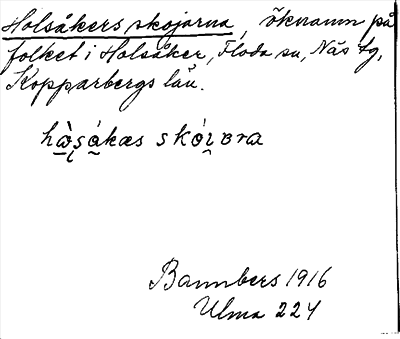 Holsåkersskojarna, öknamn på
folket i Holsåker, Floda sn, Nås tg,
Kopparbergs län.
hò̱l̥såkæs skói̯ɒra
Bannbers 1916
Ulma 224